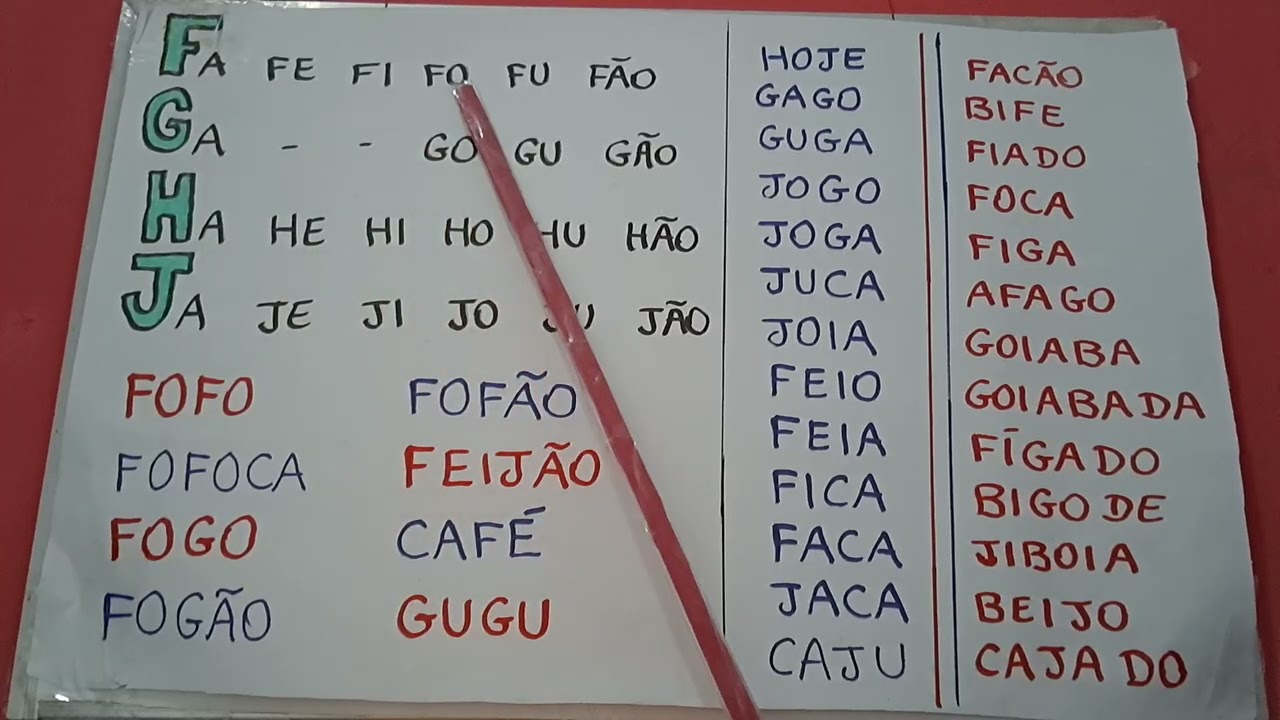 FA FE FI FO FU FÃO
GA - - GO GU GÃO
HA HE HI HO HU HÃO
JA JE JI JO JU JÃO
FOFO FOFÃO
FOFOCA FEIJÃO
FOGO CAFÉ
FOGÃO GUGU
HOJE
GAGO
GUGA
JOGO
JOGA
JUCA
JOIA
FEIO
FEIA
FICA
FACA
JACA
CAJU
FACÃO
BIFE
FIADO
FOCA
FIGA
AFAGO
GOIABA
GOIABADA
FÍGADO
BIGODE
JIBOIA
BEIJO
CAJADO